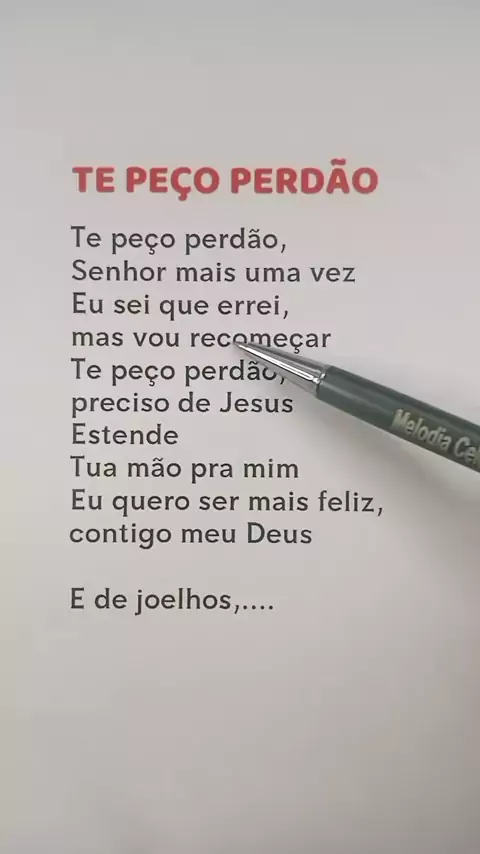 TE PEÇO PERDÃO
Te peço perdão,
Senhor mais uma vez
Eu sei que errei,
mas vou recomeçar
Te peço perdão,
preciso de Jesus
Estende
Tua mão pra mim
Eu quero ser mais feliz,
contigo meu Deus
E de joelhos,....
Melodia